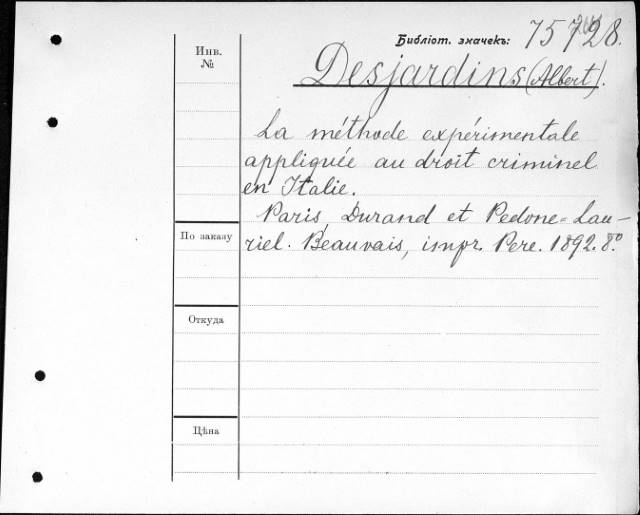 Библіот. значекъ: 75728.
Инв.
№
Desjardins (Albert).
La méthode expérimentale
appliquée au droit criminel
en Italie.
Paris, Durand et Pedone-Lau-
По заказу
riel. Beauvais, impr. Pere. 1892. 8.º
Откуда
Цѣна